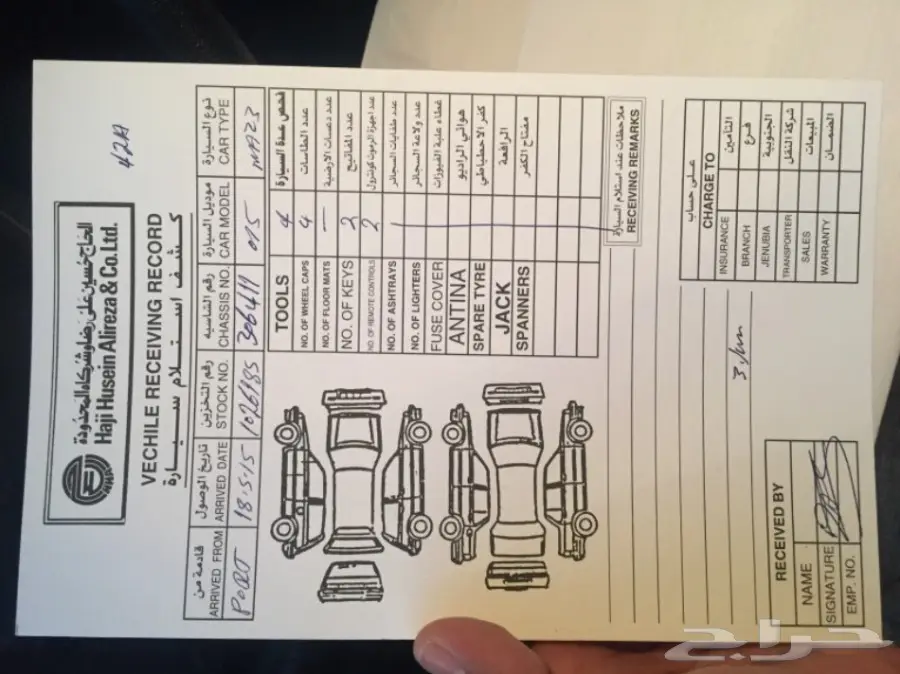 42A
الحاج حسين علي رضا وشركاه المحدودة
Haji Husein Alireza & Co.Ltd.
HHA
VECHILE RECEIVING RECORD
كشف استلام سيارة
قادمة من تاريخ الوصول رقم التخزين رقم الشاسيه موديل السيارة نوع السيارة
ARRIVED FROM ARRIVED DATE STOCK NO. CHASSIS NO. CAR MODEL CAR TYPE
PORT 18.5.15 1026185 306411 015
TOOLS 4 فحص عدة السيارة
NO. OF WHEEL CAPS 4 عدد الطاسات
NO. OF FLOOR MATS — عدد دعسات الارضية
NO. OF KEYS 2 عدد المفاتيح
NO. OF REMOTE CONTROLS 2 عدد اجهزة الريموت كونترول
NO. OF ASHTRAYS عدد طفايات السجائر
NO. OF LIGHTERS عدد ولاعة السجائر
FUSE COVER غطاء علبة الفيوزات
ANTINA هوائي الراديو
SPARE TYRE كفر الاحتياطي
JACK الرافعة
SPANNERS مفتاح الكفر
ملاحظات عند استلام السيارة
RECEIVING REMARKS
على حساب
CHARGE TO
INSURANCE التامين
BRANCH فرع
JENUBIA الجنوبية
TRANSPORTER شركة النقل
SALES المبيعات
WARRANTY الضمان
RECEIVED BY
NAME
SIGNATURE
EMP. NO.
حراج